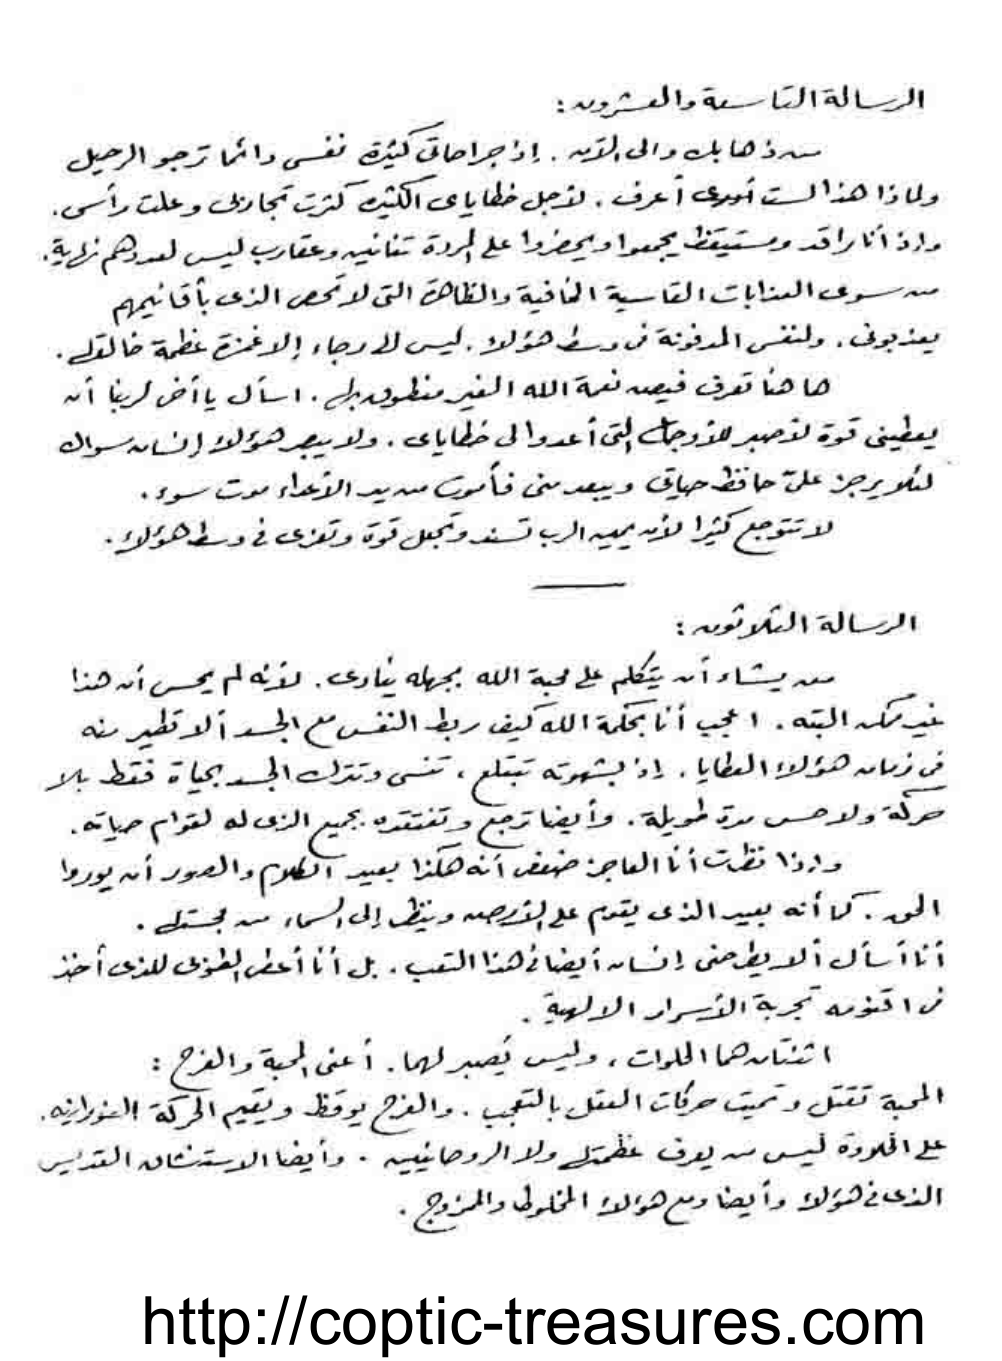 الرسالة التاسعة والعشرون :
من ذهابك والى الآن . إذ جراحاتى كثيرة نفسى دائما ترجو الرحيل
ولماذا هذا لست أعرف . لأجل خطاياى الكثيره كثرت تجاربى وعلت رأسى .
وإذ أنا راقد ومستيقظ يجمعوا ويحضروا على المردة تنانين وعقارب ليس لعددهم نهاية .
من سوى العذابات القاسية الخافية والظاهرة التى لا تحصى الذى بأقانيمهم
يعذبونى . ولنفس المدفونة فى وسط هؤلاء . ليس لى رجاء إلا غمزة عظمة خالقك .
ها هنا تعرف فيض نعمة الله الغير منطوق بها . اسأل يا أخى لربنا أن
يعطينى قوة لأصبر للأوجاع التى أعدوا لى خطاياى . ولا يبصر هؤلاء إنسان سواك
لئلا يرجز علىّ حافظ حياتى ويبعد منى فأموت من يد الأعداء موت سوء .
لا تتوجع كثيرا لأن يمين الرب تسند وتجعل قوة وتعزى فى وسط هؤلاء .
الرسالة الثلاثون :
من يشاء أن يتكلم على محبة الله بجهله ينادى . لأنه لم يحس أن هذا
غير ممكن البته . اعجب أنا بحكمة الله كيف ربط النفس مع الجسد ألا تطير منه
فى زمان هؤلاء العطايا . إذ بشهوته تبتلع ، تنسى وتترك الجسد بحياة فقط بلا
حركة ولا حس مدة طويلة . وأيضا ترجع وتفتقده بجميع الذى له لقوام حياته .
وإذا نظرت أنا العاجز ضعفى أنه هكذا بعيد الكلام والصور أن يوروا
الحق . كما أنه بعيد الذى يقوم على الأرض وينظر إلى السماء من
أنا أسأل ألا يطرحنى إنسان أيضا فى هذا التعب . بل أنا أعطى الطوبى للذى أخذ
فى اقنومه تجربة الأسرار الالهية .
اثنتان هما الحلوات ، وليس يُصبر لهما . أعنى المحبة والفرح :
المحبة تقتل وتميت حركات العقل بالتعجب . والفرح يوقظ ويقيم الحركة النورانيه .
على الحلاوة ليس من يعرف عظمتك ولا الروحانيين . وأيضا الاستنشاق القديس
الذى فى هؤلاء وأيضا ومع هؤلاء المخلوط والممزوج .
http://coptic-treasures.com